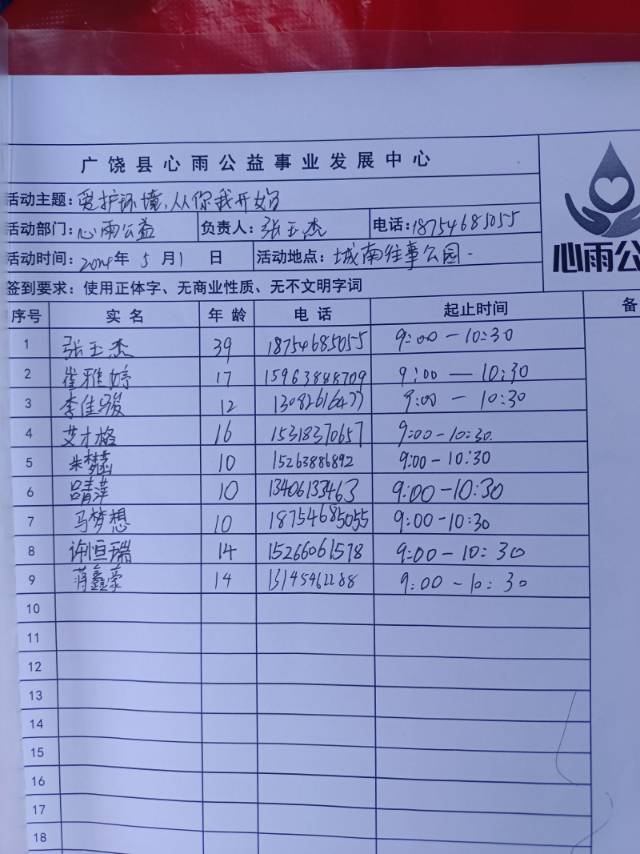 广饶县心雨公益事业发展中心
活动主题：爱护环境，从你我开始
活动部门：心雨公益 负责人：张玉杰 电话：18754685055
活动时间：2024年 5 月 1 日 活动地点：城南往事公园.
心雨公
签到要求：使用正体字、无商业性质、无不文明字词
序号 实 名 年 龄 电 话 起止时间 备
1 张玉杰 39 18754685055 9:00-10:30
2 崔雅婷 17 15963848709 9:00-10:30
3 李佳骏 12 13082616477 9:00-10:30
4 艾才格 16 15318370657 9:00-10:30
5 朱梦菡 10 15263886892 9:00-10:30
6 吕清萍 10 13406133463 9:00-10:30
7 马梦想 10 18754685055 9:00-10:30
8 许恒瑞 14 15266061578 9:00-10:30
9 蒋鑫豪 14 13145461288 9:00-10:30
10
11
12
13
14
15
16
17
18